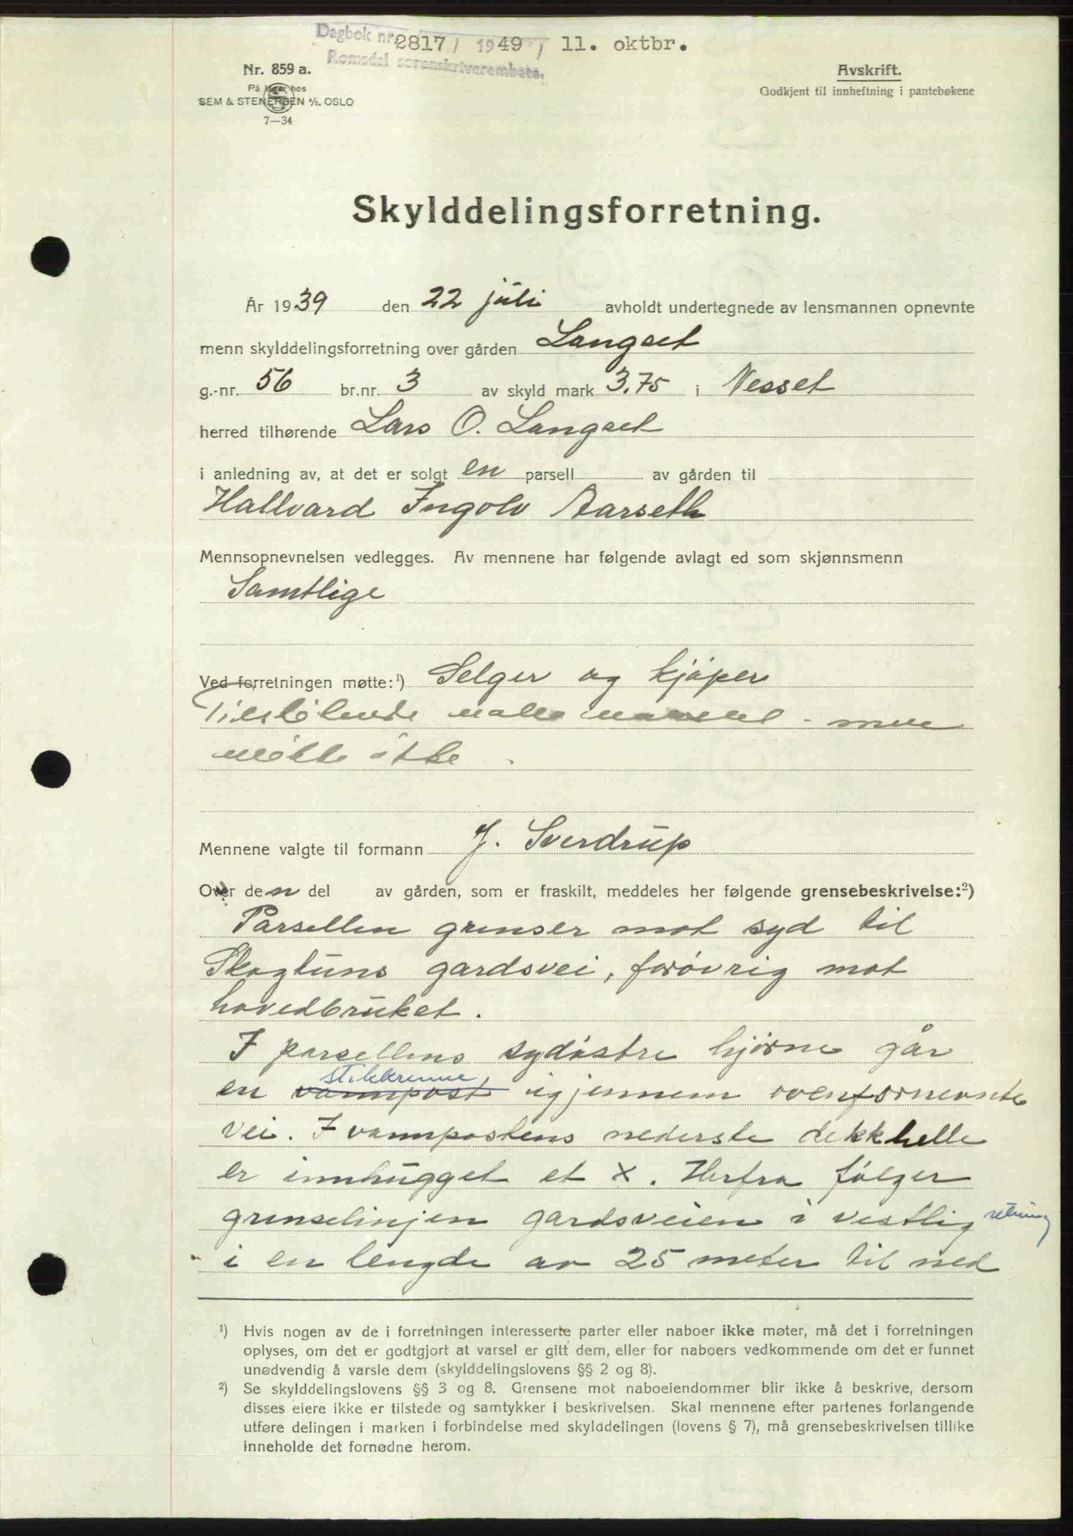 Dagbok nr. 2817 / 1949 / 11. oktbr.
Romsdal sorenskriverembete.
Nr. 859 a.
På lager hos
SEM & STENERSEN A/S, OSLO
7—34
Avskrift.
Godkjent til innheftning i pantebøkene
Skylddelingsforretning.
År 1939 den 22 juli avholdt undertegnede av lensmannen opnevnte
menn skylddelingsforretning over gården Langset
g.-nr. 56 br.nr. 3 av skyld mark 3.75 i Nesset
herred tilhørende Lars O. Langset
i anledning av, at det er solgt en parsell av gården til
Hallvard Ingolv Aarseth
Mennsopnevnelsen vedlegges. Av mennene har følgende avlagt ed som skjønnsmenn
Samtlige
Ved forretningen møtte:¹) Selger og kjøper
Tilstøtende naboe varslet - men
møtte ikke.
Mennene valgte til formann J. Sverdrup
Over den del av gården, som er fraskilt, meddeles her følgende grensebeskrivelse:²)
Parsellen grenser mot syd til
Skogtuns gardsvei, forøvrig mot
hovedbruket.
I parsellens sydøstre hjørne går
en vannpost stikkrenne igjennem ovenfornevnte
vei. I vannpostens nederste dekkhelle
er innhugget et X. Herfra følger
grenselinjen gardsveien i vestlig retning
i en lengde av 25 meter til ned
¹) Hvis nogen av de i forretningen interesserte parter eller naboer ikke møter, må det i forretningen
oplyses, om det er godtgjort at varsel er gitt dem, eller for naboers vedkommende om det er funnet
unødvendig å varsle dem (skylddelingslovens §§ 2 og 8).
²) Se skylddelingslovens §§ 3 og 8. Grensene mot naboeiendommer blir ikke å beskrive, dersom
disses eiere ikke er tilstede og samtykker i beskrivelsen. Skal mennene efter partenes forlangende
utføre delingen i marken i forbindelse med skylddelingen (lovens § 7), må grensebeskrivelsen tillike
inneholde det fornødne herom.